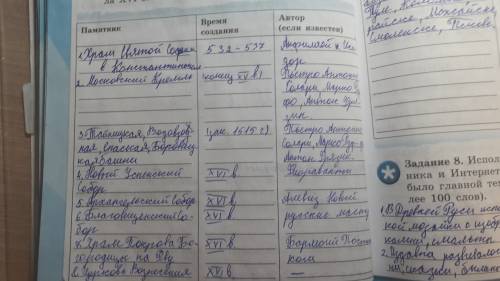 ла XVI
Памятник
Время создания
Автор (если известен)
1. Храм Святой Софии
в Константинополе
532-537
Анфимий и Иси
дор
2. Московский Кремль
конец XV в.
Пьетро Антонио
Солари, Марко Ру
фо, Антон Фря
зин.
3. Тайницкая, Водовзвод
ная, Спасская, Боровиц
кая башни
Пьетро Антонио
Солари, Марко Руф
Антон Фрязин.
4. Новый Успенский
Собор
XVI в
Фиораванти
5 Архангельский Собор
XVI в
Алевиз Новый
6 Благовещенский Со
бор
XVI в
русские масте
8. Храм Покрова Бо
городицы на Рву
XVI в
Бармой Пост
ика
8. Церковь Вознесения
XVI в
—
Можайске
Смоленске, Пскове,
Задание 8. Испол
ника и Интернет
было главной те
лее 100 слов).
1. В Древней Руси
ной мозаики с изоб
камня, смальты
2. Издавна развивало